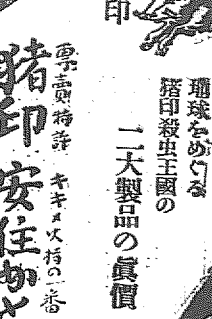 地球をめぐる
猪印殺虫王國の
二大製品の眞價
印
專賣特許 キキメ火持の一番
猪印 安住か